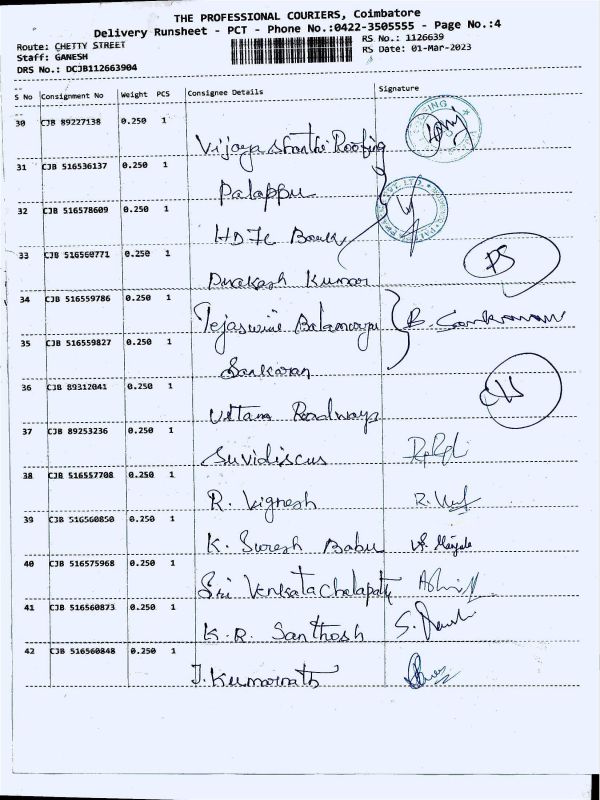 THE PROFESSIONAL COURIERS, Coimbatore
Delivery Runsheet - PCT - Phone No.:0422-3505555 - Page No.:4
Route: CHETTY STREET
RS No.: 1126639
Staff: GANESH
RS Date: 01-Mar-2023
DRS No.: DCJB112663904
S No Consignment No Weight PCS Consignee Details Signature
30 CJB 89227138 0.250 1
Vijaya Shanthi Roofing
31 CJB 516536137 0.250 1
Palappu
32 CJB 516578609 0.250 1
HDFC Bank
33 CJB 516560771 0.250 1
Prakash Kumar PS
34 CJB 516559786 0.250 1
Tejaswini Balamurugu B. Sankaran
35 CJB 516559827 0.250 1
Sankaran
36 CJB 89312041 0.250 1
Uttam Roadways
37 CJB 89253236 0.250 1
Suvidiscus
38 CJB 516557708 0.250 1
R. Vignesh
39 CJB 516560850 0.250 1
K. Suresh Babu
40 CJB 516575968 0.250 1
Sri Venkatachalapathy
41 CJB 516560873 0.250 1
K.R. Santhosh
42 CJB 516560848 0.250 1
J. Kumarnath